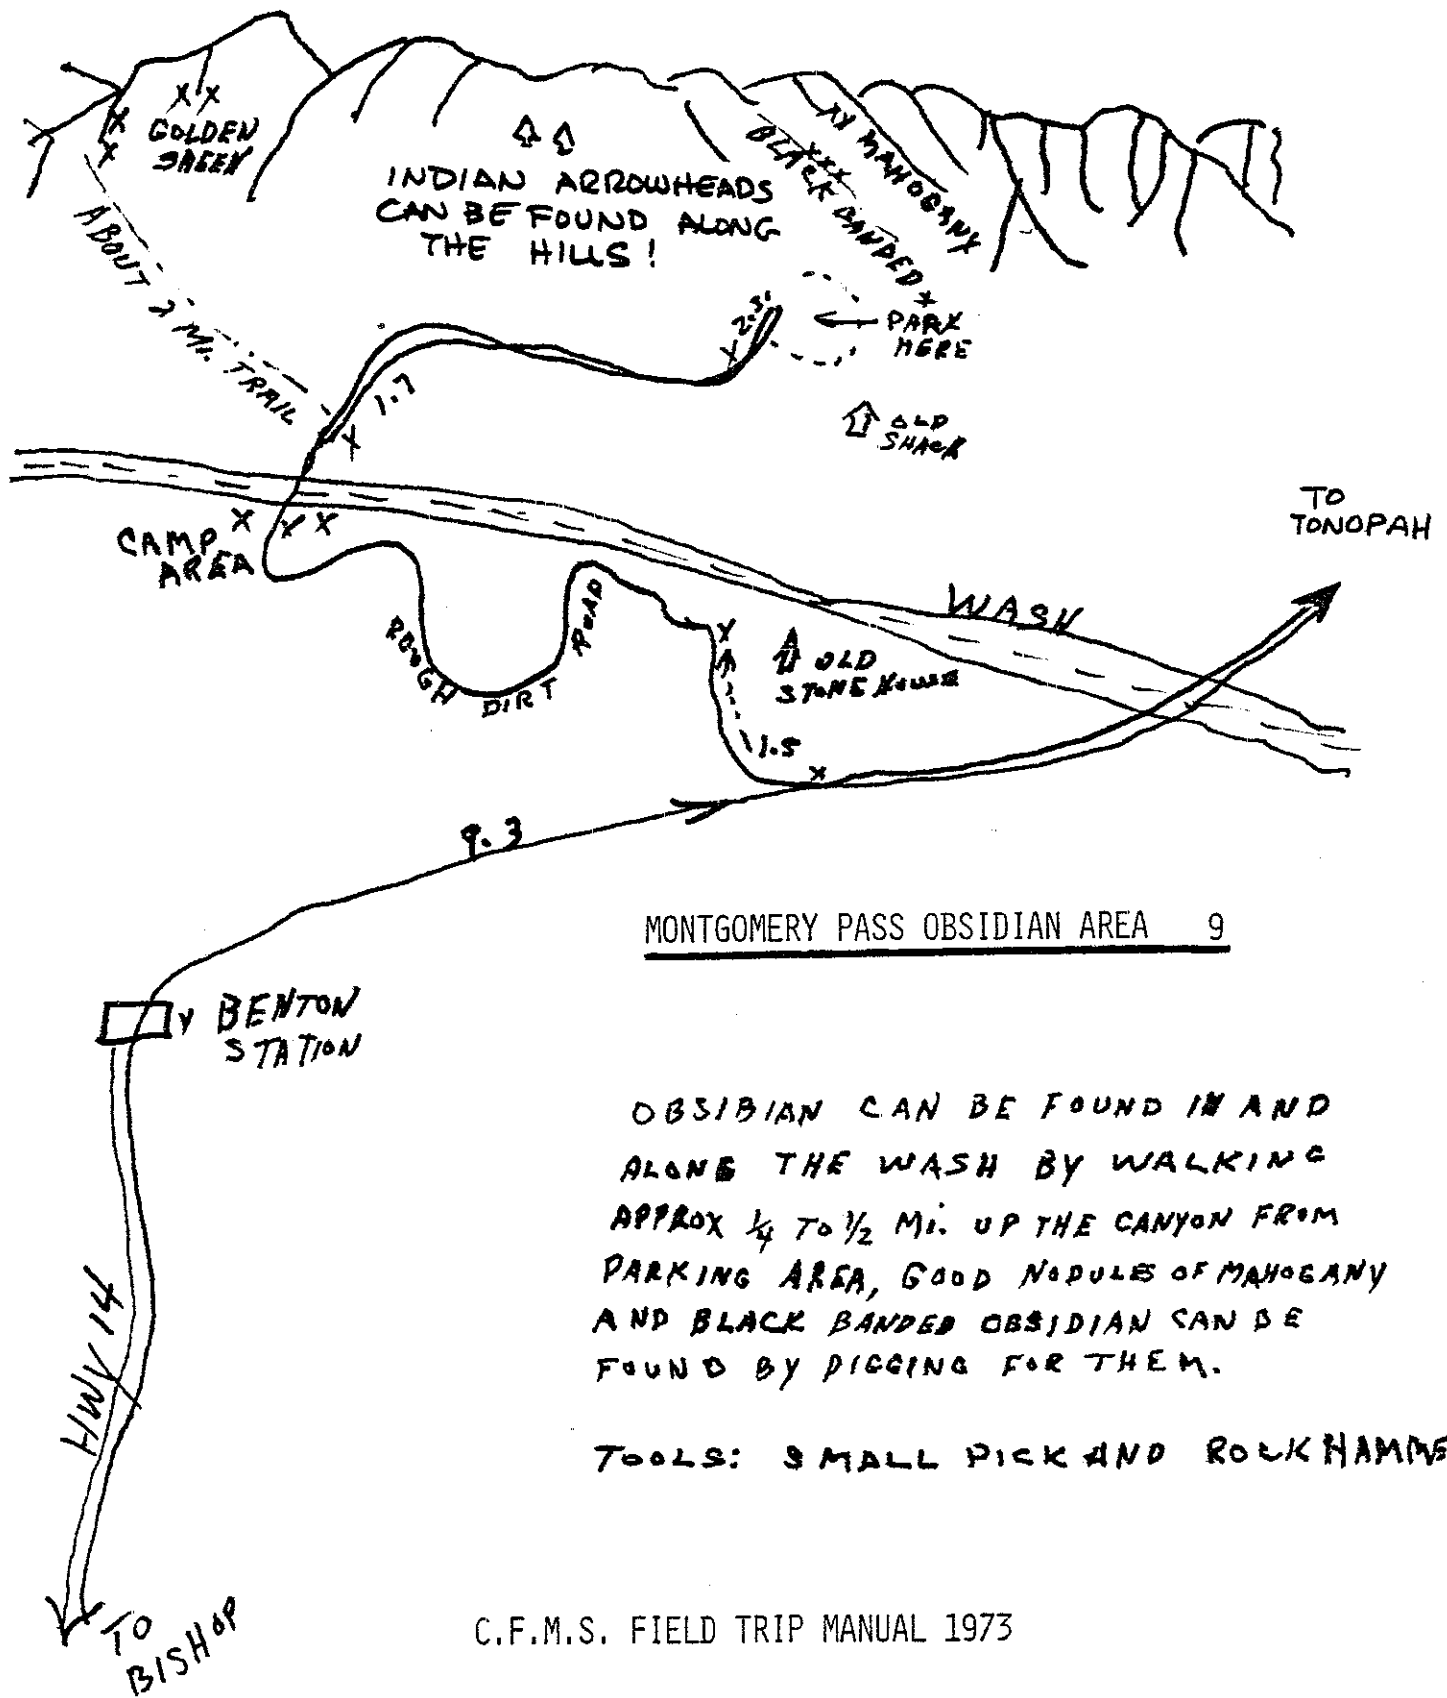 GOLDEN
SHEEN
INDIAN ARROWHEADS
CAN BE FOUND ALONG
THE HILLS!
XX MAHOGANY
BLACK BANDED
ABOUT 2 MI. TRAIL
2.3
PARK
HERE
1.7
OLD
SHACK
TO
TONOPAH
CAMP
AREA
WASH
ROUGH DIRT ROAD
OLD
STONE HOUSE
1.5
9.3
MONTGOMERY PASS OBSIDIAN AREA 9
BENTON
STATION
OBSIBIAN CAN BE FOUND IN AND
ALONG THE WASH BY WALKING
APPROX 1/4 TO 1/2 MI. UP THE CANYON FROM
PARKING AREA, GOOD NODULES OF MAHOGANY
AND BLACK BANDED OBSIDIAN CAN BE
FOUND BY DIGGING FOR THEM.
HWY 14
TOOLS: SMALL PICK AND ROCK HAMME
TO
BISHOP
C.F.M.S. FIELD TRIP MANUAL 1973